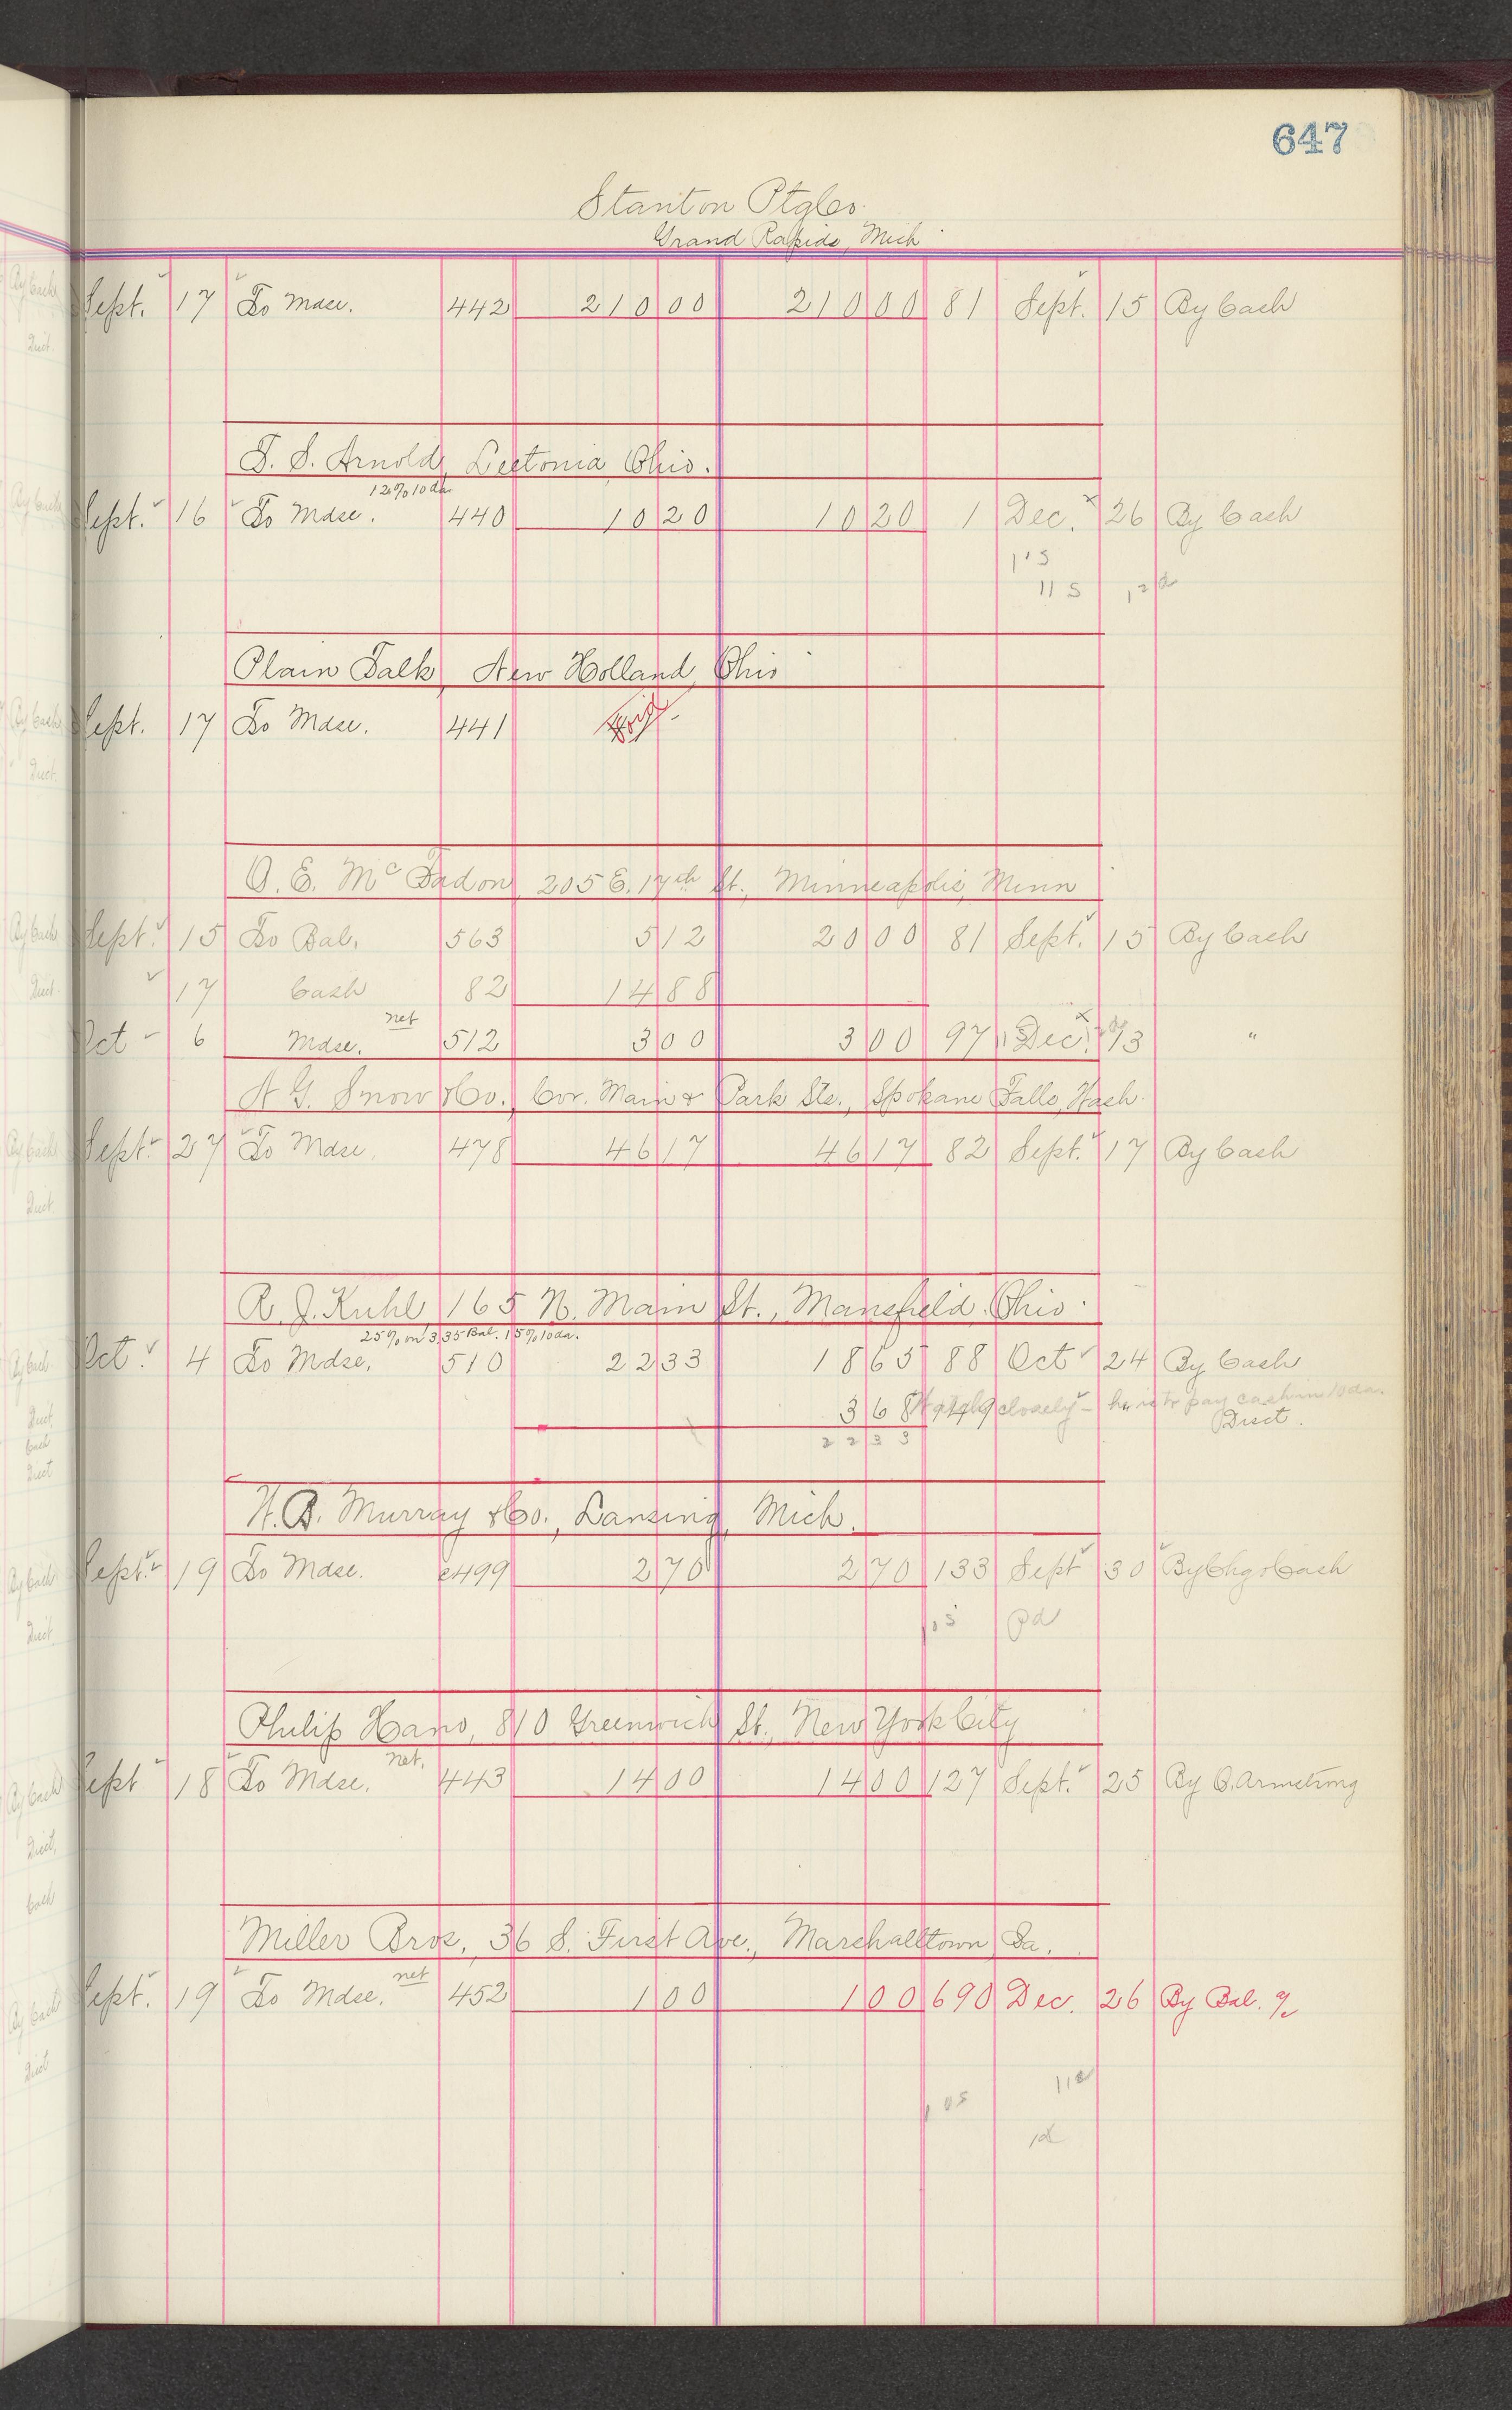 647
Stanton Ptg Co.
Grand Rapids, Mich
Sept. 17 To Mdse. 442 210 00 210 00 81 Sept. 15 By Cash
T. S. Arnold, Leetonia, Ohio.
12% 10 da.
Sept. 16 To Mdse. 440 10 20 10 20 1 Dec. 26 By Cash
Plain Talk, New Holland, Ohio
Sept. 17 To Mdse. 441
O. E. McFadon, 205 E. 17th St., Minneapolis, Minn
Sept. 15 To Bal. 563 5 12 20 00 81 Sept. 15 By Cash
17 Cash 82 14 88
Oct 6 Mdse. net 512 3 00 3 00 97 Dec. 13 "
H. G. Snow & Co., Cor. Main & Park Sts., Spokane Falls, Wash.
Sept. 27 To Mdse. 478 46 17 46 17 82 Sept. 17 By Cash
R. J. Kuhl, 165 N. Main St., Mansfield, Ohio.
25% on 3.35 Bal. 15% 10 da.
Oct. 4 To Mdse. 510 22 33 18 65 88 Oct 24 By Cash
3 68 closely - he is to pay cash in 10 da.
Disct.
22 33
H. B. Murray & Co., Lansing, Mich.
Sept. 19 To Mdse. c499 2 70 2 70 133 Sept 30 By Chgo Cash
Pd
Philip Hano, 810 Greenwich St., New York City
Sept 18 To Mdse. net. 443 14 00 14 00 127 Sept. 25 By O. Armstrong
Miller Bros., 36 S. First Ave., Marshalltown, Ia.
Sept. 19 To Mdse. net 452 1 00 1 00 690 Dec. 26 By Bal. %